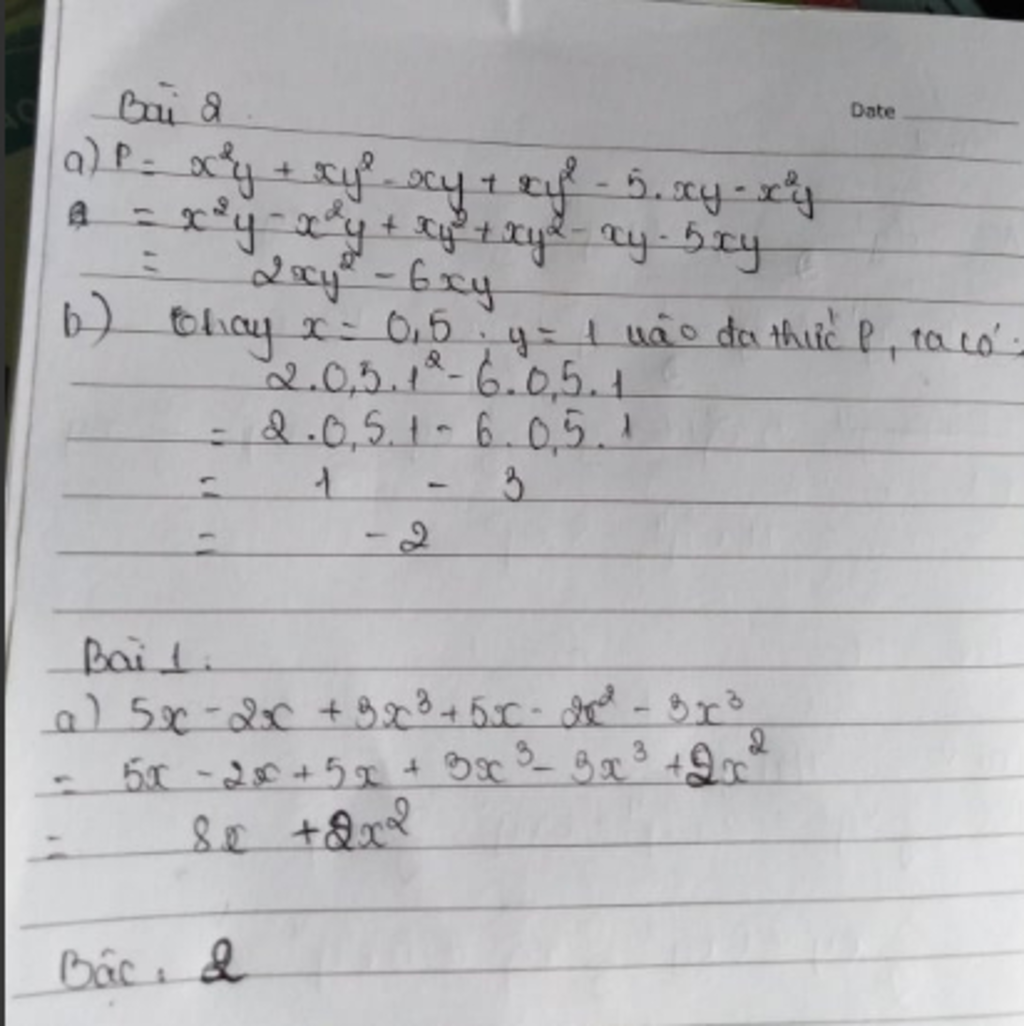 Date
Bài 2.
a) P = x²y + xy² - xy + xy² - 5.xy - x²y
= x²y - x²y + xy² + xy² - xy - 5xy
= 2xy² - 6xy
b) thay x = 0,5 . y = 1 vào đa thức P, ta có:
2.0,5.1² - 6.0,5.1
= 2.0,5.1 - 6.0,5.1
= 1 - 3
= -2
Bài 1.
a) 5x - 2x + 3x³ + 5x - 2x² - 3x³
= 5x - 2x + 5x + 3x³ - 3x³ + 2x²
= 8x + 2x²
Bậc: 2